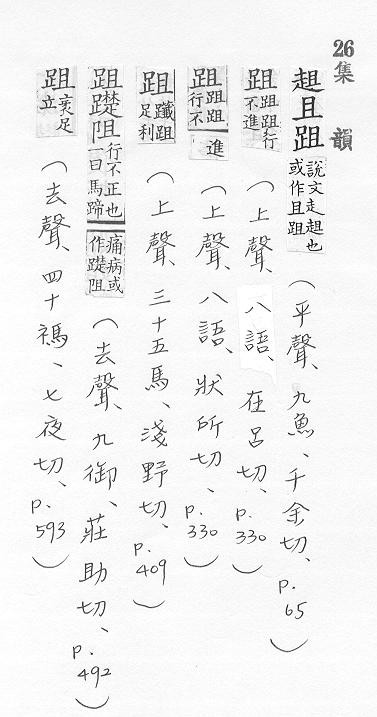 26 集韻
趄且跙 說文走趄也或作且跙 (平聲、九魚、千余切、p. 65)
跙 跙跙行不進 (上聲、八語、在呂切、p. 330)
跙 跙跙行不進 (上聲、八語、狀所切、p. 330)
跙 跙足利 (上聲、三十五馬、淺野切、p. 409)
跙 阻 行不正也一曰馬蹄痛病或作 阻 (去聲、九御、莊助切、p. 492)
跙 衺足立 (去聲、四十禡、七夜切、p. 593)